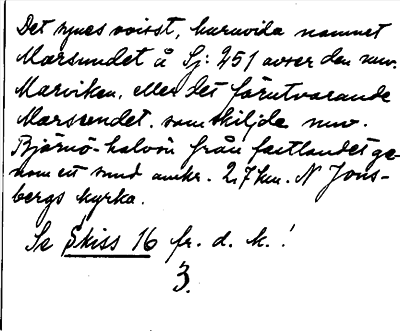 Det synes ovisst, huruvida namnet
Marsundet å Sj: 251 avser den nuv.
Marviken, eller det förutvarande
Marsundet, som skiljde nuv.
Björnö-halvön från fastlandet ge-
nom ett sund omkr. 2,7 km. N Jons-
bergs kyrka.
Se Skiss 16 fr. d. k.!
3.